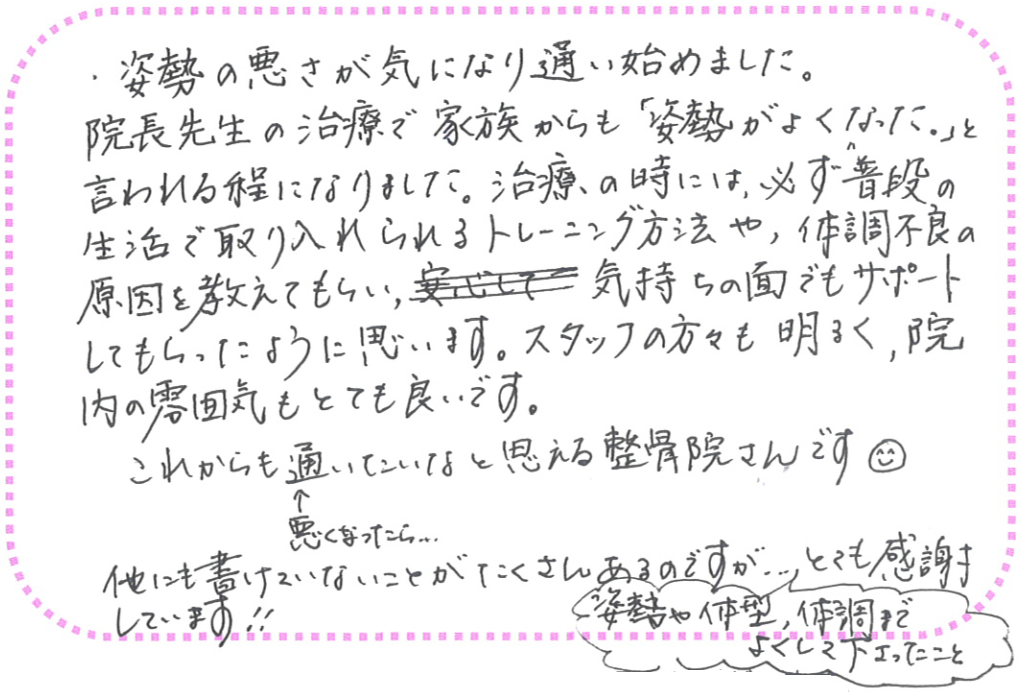 ・姿勢の悪さが気になり通い始めました。
院長先生の治療で家族からも「姿勢がよくなった。」と
言われる程になりました。治療の時には、必ず普段の
生活で取り入れられるトレーニング方法や、体調不良の
原因を教えてもらい、安心して 気持ちの面でもサポート
してもらったように思います。スタッフの方々も明るく、院
内の雰囲気もとても良いです。
これからも通いたいなと思える整骨院さんです
↑
悪くなったら…
他にも書けていないことがたくさんあるのですが…、とても感謝を
しています!!
姿勢や体型、体調まで
よくして下さったこと